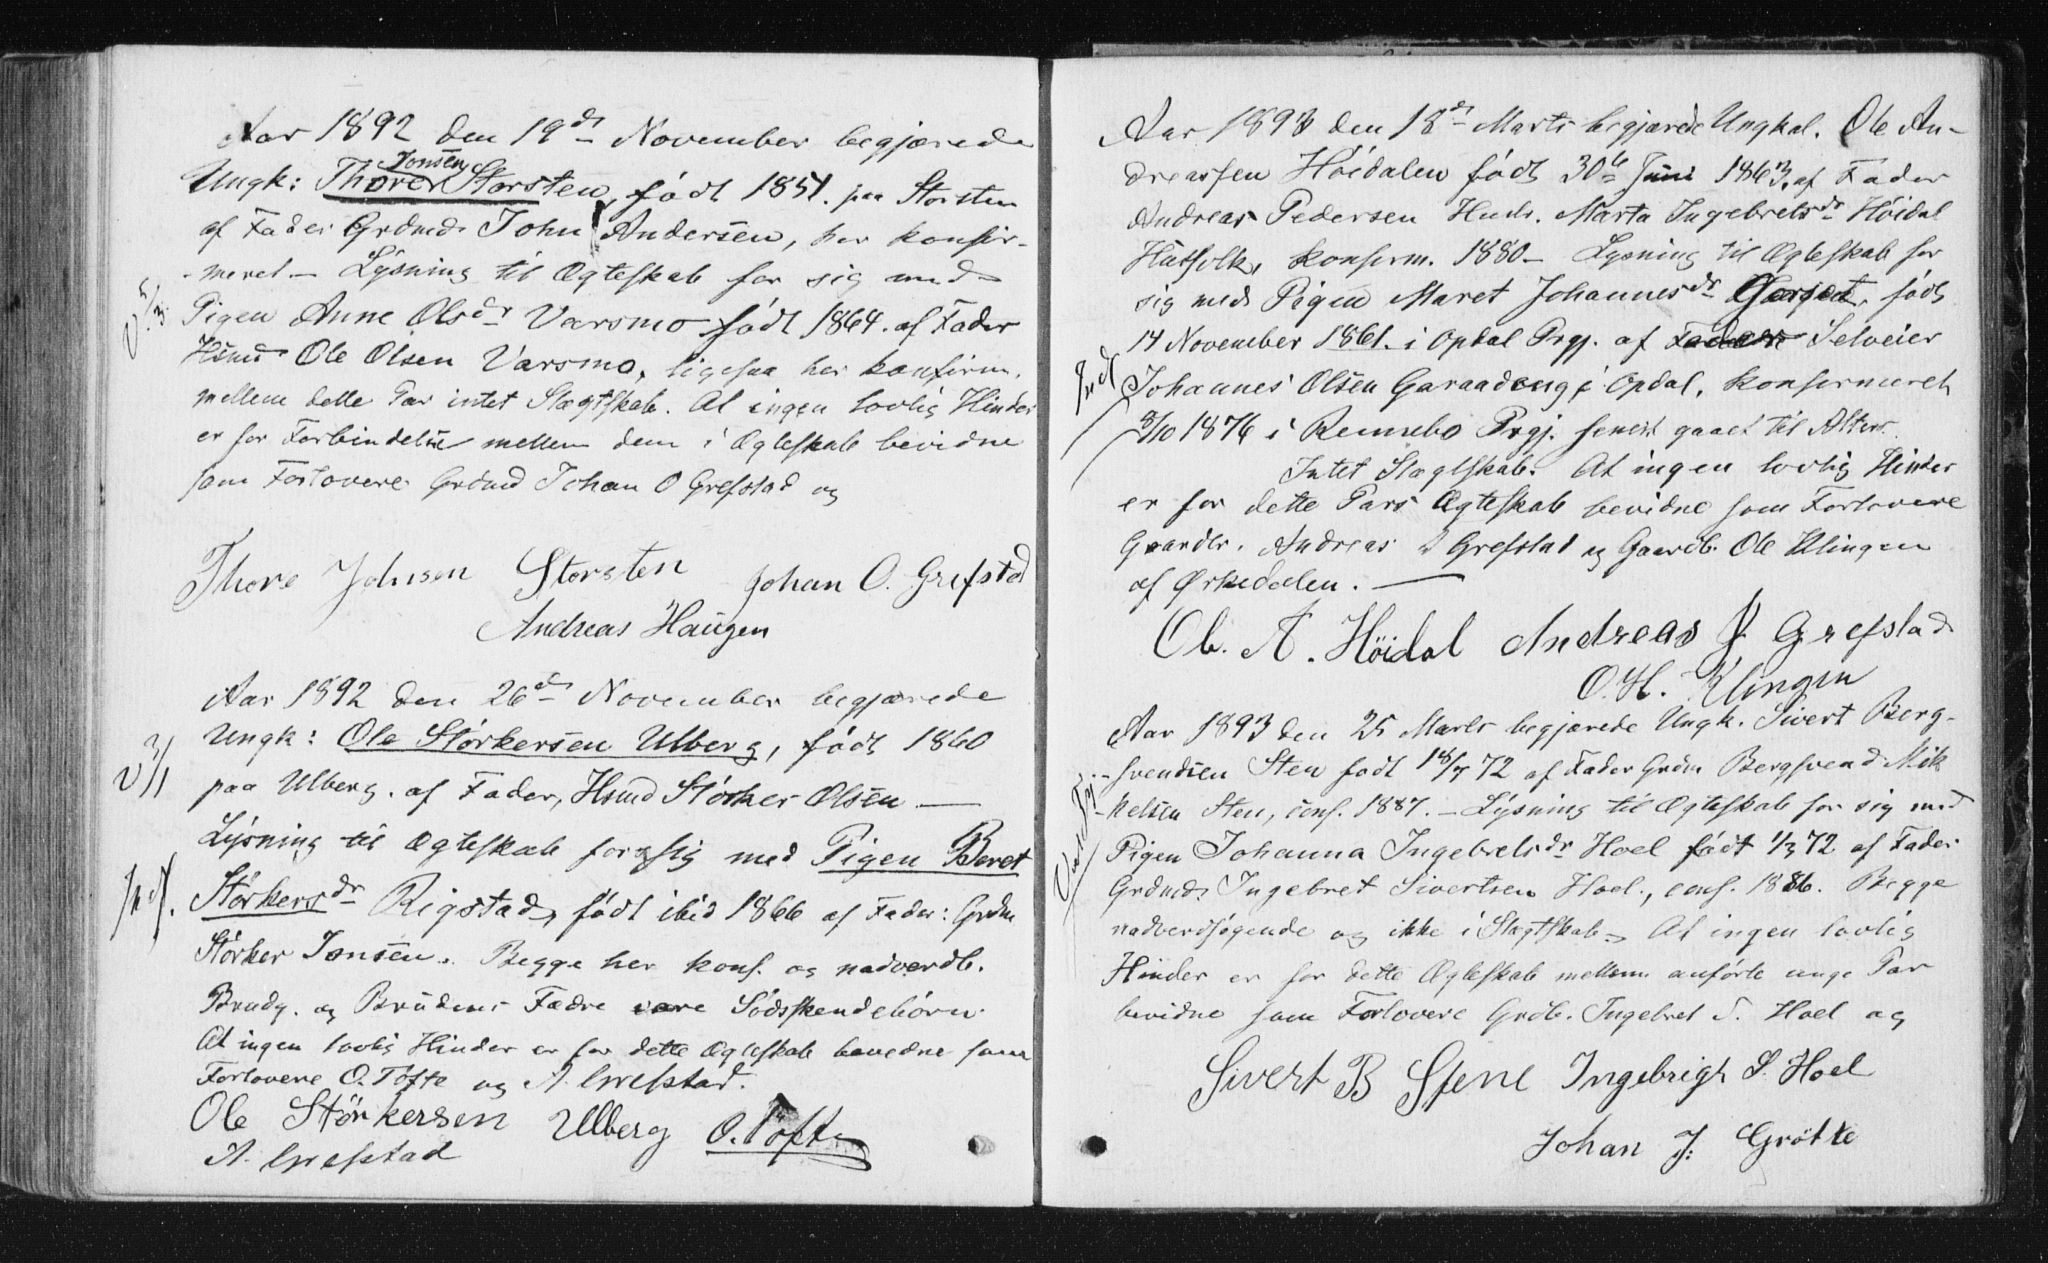 Aar 1892 den 19de November begjærede
Jonsen
Ungk: Thore Storsten, født 1851. paa Storsten
af Fader Grdmd. John Andersen, her konfir-
-meret - Lysning til Ægteskab for sig med
Pigen Anne Olsdr Varsmo født 1864. af Fader
Hsmd Ole Olsen Varsmo, ligesaa her konfirm.
mellem dette Par intet Slægtskab. At ingen lovlig Hinder
er for Forbindelse mellem dem i Ægteskab bevidne
som Forlovere Grdmd Johan O Grefstad og
Thore Johnsen Storsten Johan O. Grefstad
Andreas Haugen
Aar 1892 den 26de November begjærede
Ungk: Ole Størkersen Ulberg, født 1860
paa Ulberg. af Fader, Hsmd Størker Olsen —
Lysning til Ægteskab for sig med Pigen Beret
Størkersdr Rigstad, født ibid 1866 af Fader: Grdm
Størker Jonsen. Begge her konf. og nadverdb.
Brudg. og Brudens Fædre vare Södskendebörn.
At ingen lovlig Hinder er for dette Ægteskab bevidne som
Forlovere O. Tofte og A. Grefstad.
Ole Störkersen Ulberg O. Tofte
A. Grefstad
Aar 1893 den 18de Marts begjærede Ungkal. Ole An-
dreassen Höidalen födt 30te Juni 1863, af Fader
Andreas Pedersen Hustr. Marta Ingebretsdr Höidal
Husfolk, konfirm. 1880 - Lysning til Ægteskab for
sig med Pigen Maret Johannesdr født
14 November 1861. i Opdal Prgj. af Fader Selveier
Johannes Olsen Garaadeng i Opdal, konfirmeret
/10 1876 i Rennebo Prgj. senest gaaet til Alters.
Intet Slægtskab. At ingen lovlig Hinder
er for dette Pars Ægteskab bevidne som Forlovere
Gaardbr. Andreas J Grefstad og Gaardb. Ole Klingen
af Ørkedalen. —
Ole A. Höidal Andreas J Grefstad
O. H. Klingen
Aar 1893 den 25 Marts begjærede Ungk. Sivert Berg-
-svendsen Sten født 18/7 72 af Fader Grdm Bergsvend Mik
-kelsen Sten, conf. 1887. - Lysning til Ægteskab for sig med
Pigen Johanna Ingebretsdr Hoel født 1/3 72 af Fader
Grdmd. Ingebret Sivertsen Hoel., conf. 1886. Begge
nadverdsögende og ikke i Slægtskab - At ingen lovlig
Hinder er for dette Ægteskab mellem anförte unge Par
bevidne som Forlovere Grdb. Ingebret S. Hoel og
Sivert B Stene Ingebrigt S. Hoel
Johan J: Grötte